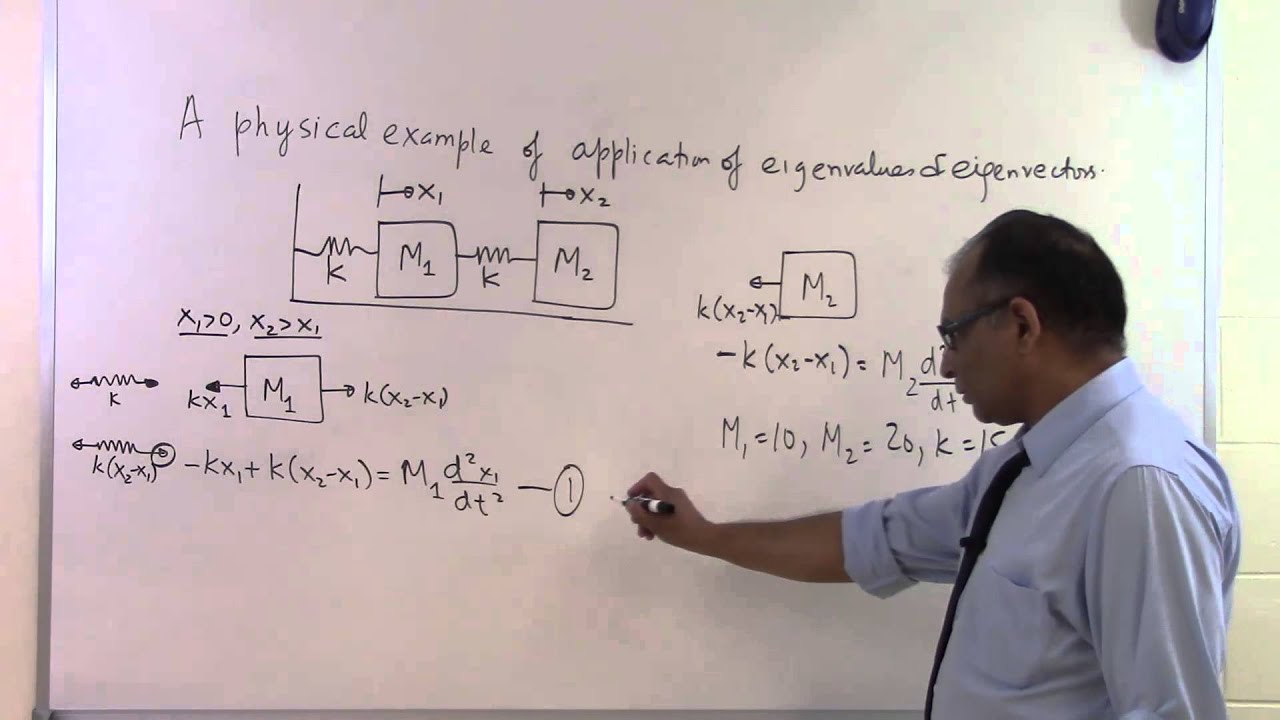 A physical example of application of eigenvalues & eigenvectors.
x₁ x₂
K M₁ K M₂
x₁>0, x₂>x₁
K
kx₁ M₁ k(x₂-x₁)
k(x₂-x₁)
-kx₁+k(x₂-x₁)=M₁ d²x₁/dt² — ①
M₂
k(x₂-x₁)
-k(x₂-x₁)=M₂ d²/dt
M₁=10, M₂=20, k=15